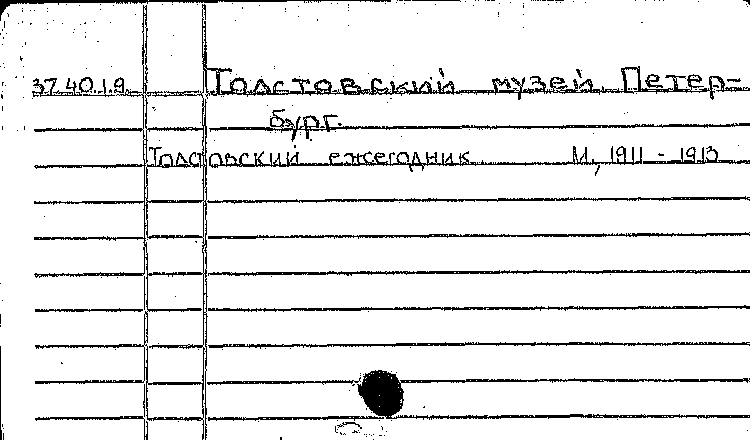 3740.1.9. Толстовский музей. Петер-
бург.
Толстовский ежегодник М., 1911 - 1913